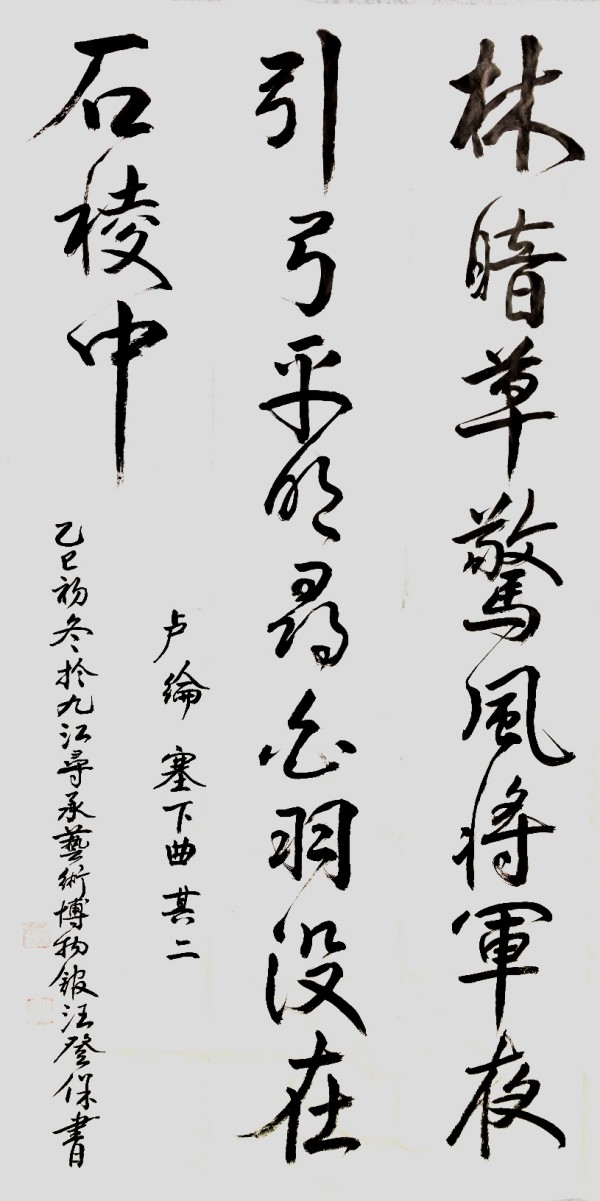 林暗草驚風将軍夜
引弓平明尋白羽没在
石稜中
卢綸 塞下曲 其二
乙巳初冬於九江尋承藝術博物館汪登保書